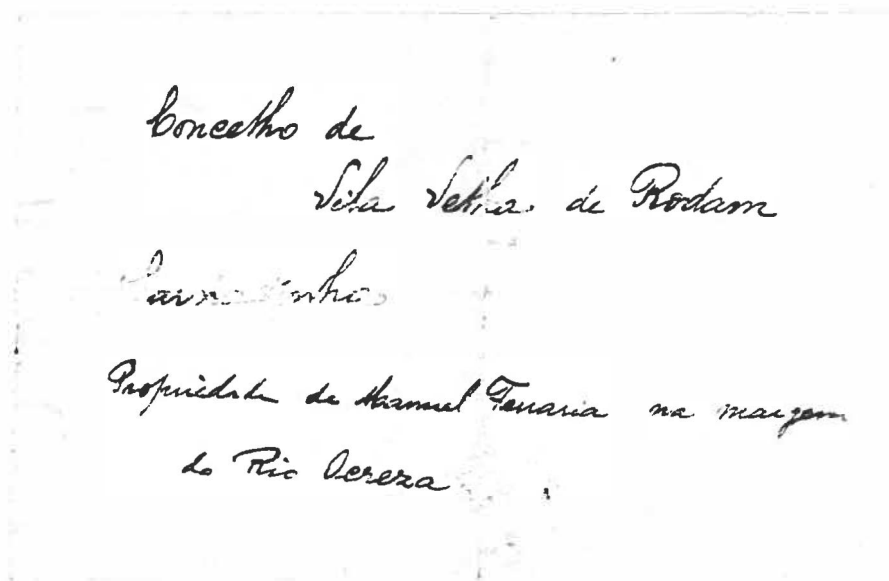 Concelho de
Vila Velha de Rodam
Propriedade de Manuel Ferraria na margem
do Rio Ocreza